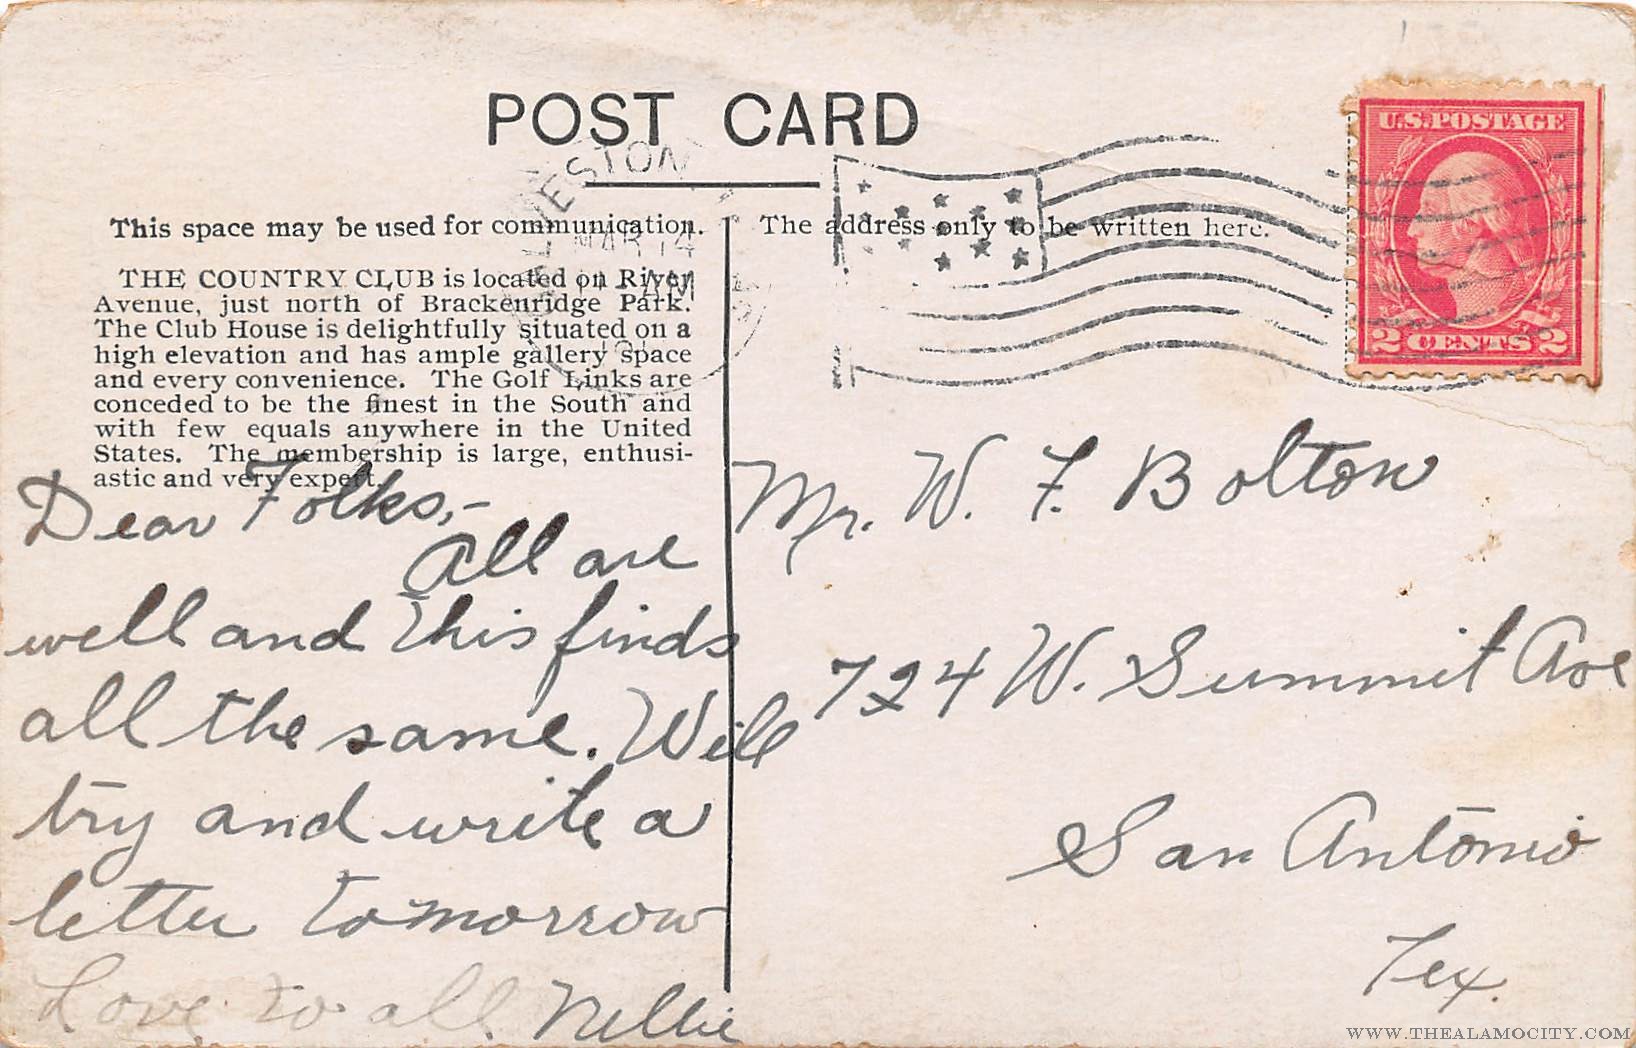 POST CARD
GALVESTON
MAR 14
This space may be used for communication.
THE COUNTRY CLUB is located on River
Avenue, just north of Brackenridge Park.
The Club House is delightfully situated on a
high elevation and has ample gallery space
and every convenience. The Golf Links are
conceded to be the finest in the South and
with few equals anywhere in the United
States. The membership is large, enthusi-
astic and very expert.
Dear Folks,-
All are
well and this finds
all the same. Will
try and write a
letter tomorrow
Love to all. Nellie
The address only to be written here.
U.S. POSTAGE
2 CENTS 2
Mr. W. F. Bolton
724 W. Summit Ave
San Antonio
Tex.
WWW.THEALAMOCITY.COM